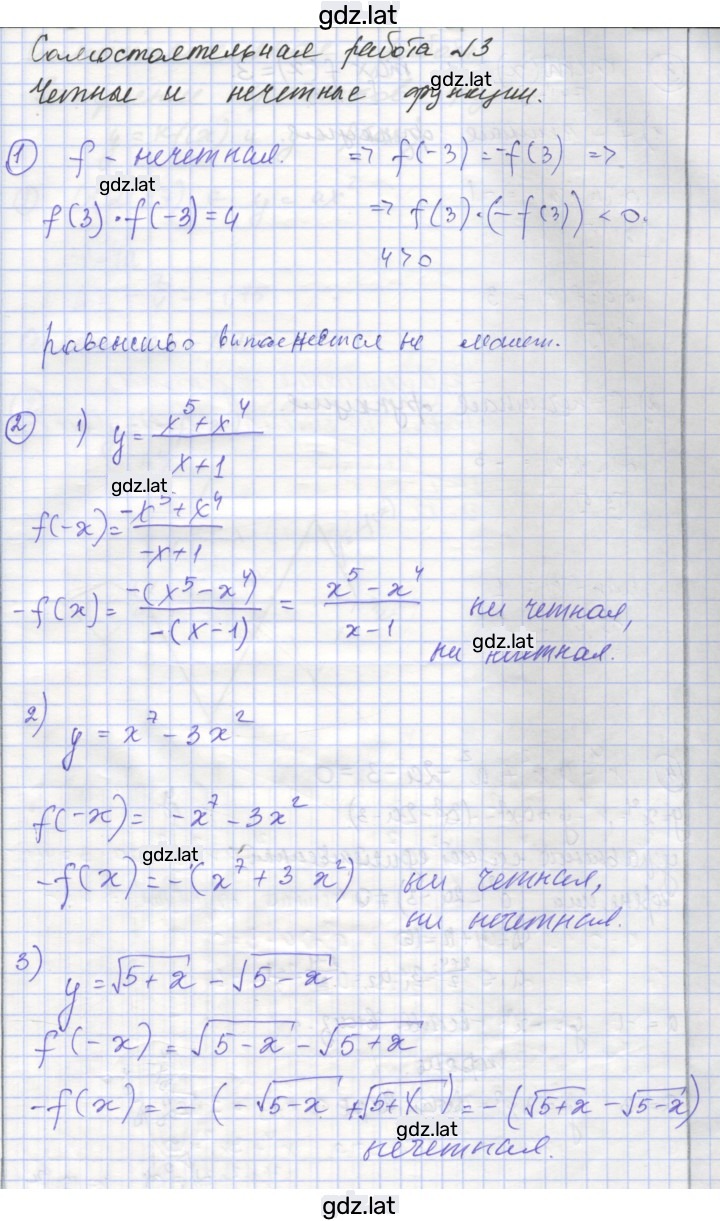 gdz.lat
Самостоятельная работа №3
gdz.lat
Четные и нечетные функции.
① f - нечетная. => f(-3) = -f(3) =>
gdz.lat
f(3)·f(-3)=4 => f(3)·(-f(3)) < 0.
4>0
равенство выполняется не может.
② 1) y = (x^5+x^4)/(x+1)
gdz.lat
f(-x) = (-x^5+x^4)/(-x+1)
-f(x) = (-(x^5-x^4))/(-(x-1)) = (x^5-x^4)/(x-1) ни четная,
gdz.lat
ни нечетная.
2) y = x^7 - 3x^2
f(-x) = -x^7 - 3x^2
gdz.lat
-f(x) = -(x^7 + 3x^2) ни четная,
ни нечетная.
3) y = √(5+x) - √(5-x)
f(-x) = √(5-x) - √(5+x)
-f(x) = -(-√(5-x) + √(5+x)) = -(√(5+x) - √(5-x))
gdz.lat
нечетная.
gdz.lat